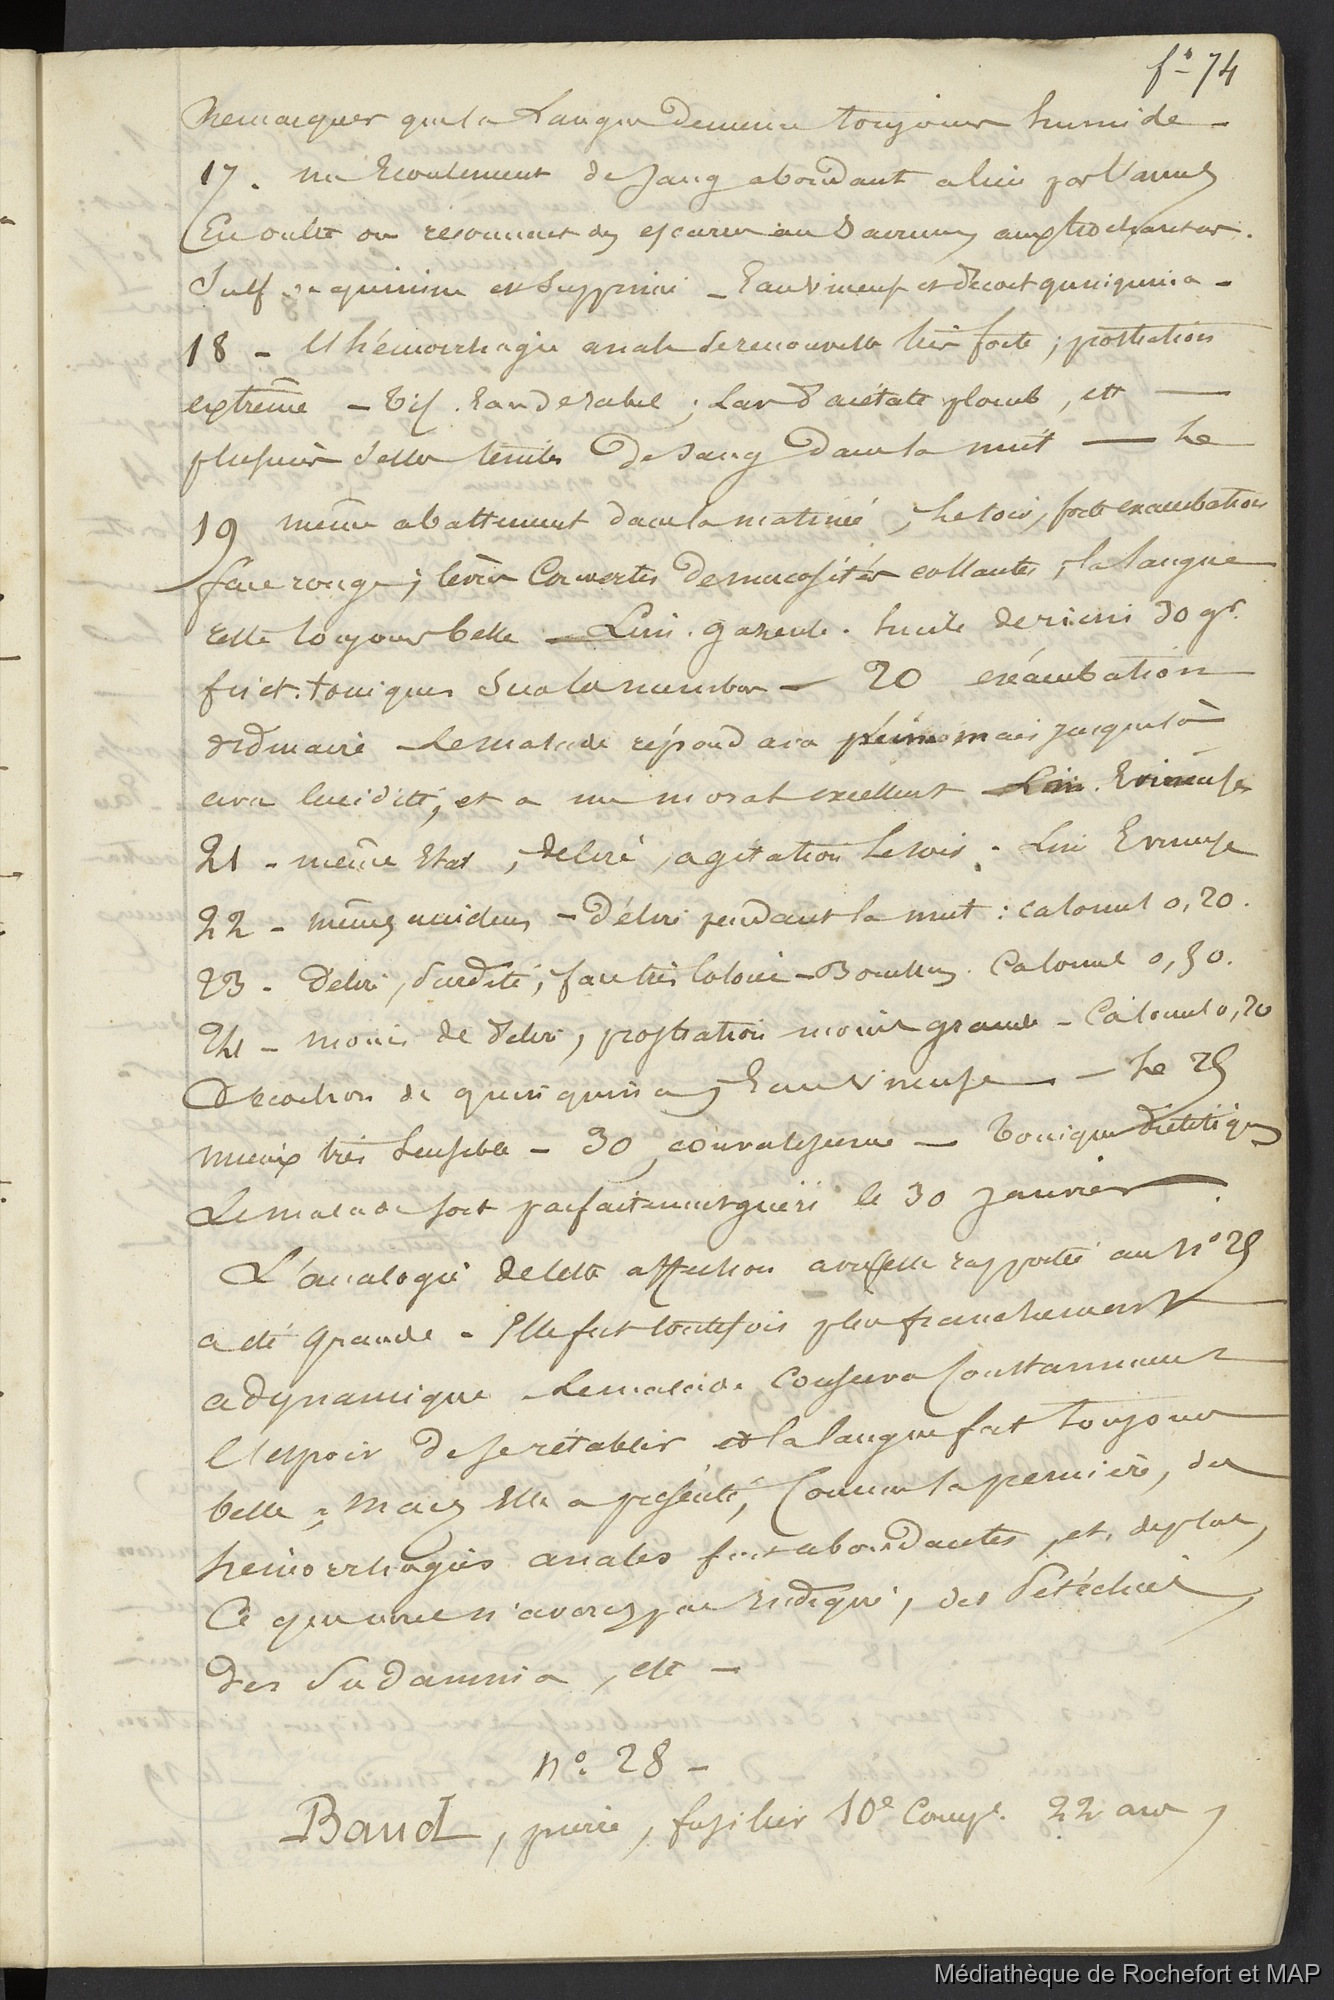 f° 74
Remarquer que la Langue demeure toujours humide -
17. un Ecoulement de sang abondant a lieu par l'anus
En outre on reconnait des escarres au Sacrum, aux trochanters.
Sulf. de quinine est supprimé - Eau vineuse et décoct quinquina -
18 - L'hémorrhagie anale se renouvelle très forte ; prostration
extrême - Eau de Rabel ; Lav d'acétate plomb, etc -
plusieurs selles teintes de sang dans la nuit - Le
19 même abattement dans la matinée, Le soir, forte exacerbation
face rouge ; lèvres Couvertes de mucosités collantes ; la langue
reste toujours belle - Lim. gazeuse. huile de ricin 30 gr.
frict. toniques sur les membres - 20 exacerbation
ordinaire - Le malade répond avec peine mais jusque là
avec lucidité, et a un moral excellent - Lim. Vineuse
21 - même Etat, délire, agitation Le soir. Lim Vineuse
22 - mêmes accidens - Délire pendant la nuit : calomel 0,20.
23 - Délire, surdité, face très colorée - Bouillon. Calomel 0,50.
24 - moins de délire, prostration moins grande - Calomel 0,20
Décoction de quinquina, Eau vineuse - Le 25
mieux très sensible - 30, convalescence - Toniques diététiques
Le malade sort parfaitement guéri le 30 janvier.
L'analogie de cette affection avec celle rapportée au N° 25
a été grande - Elle fut toutefois plus franchement
adynamique - Le malade Conserva Constamment
L'espoir de se rétablir et la langue fut toujours
belle ; Mais Elle a présenté, Comme la première, des
hémorrhagies anales fort abondantes, et, de plus,
Ce que nous n'avons pas indiqué, des Pétéchies,
des Sudamina, etc -
n° 28 -
Baud, pierre, fusilier 10e Compe. 22 ans,
Médiathèque de Rochefort et MAP